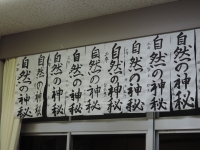 自然の神秘
自然の神秘
自然の神秘
自然の神秘
自然の神秘
自然の神秘
自然の神秘
自然の神秘